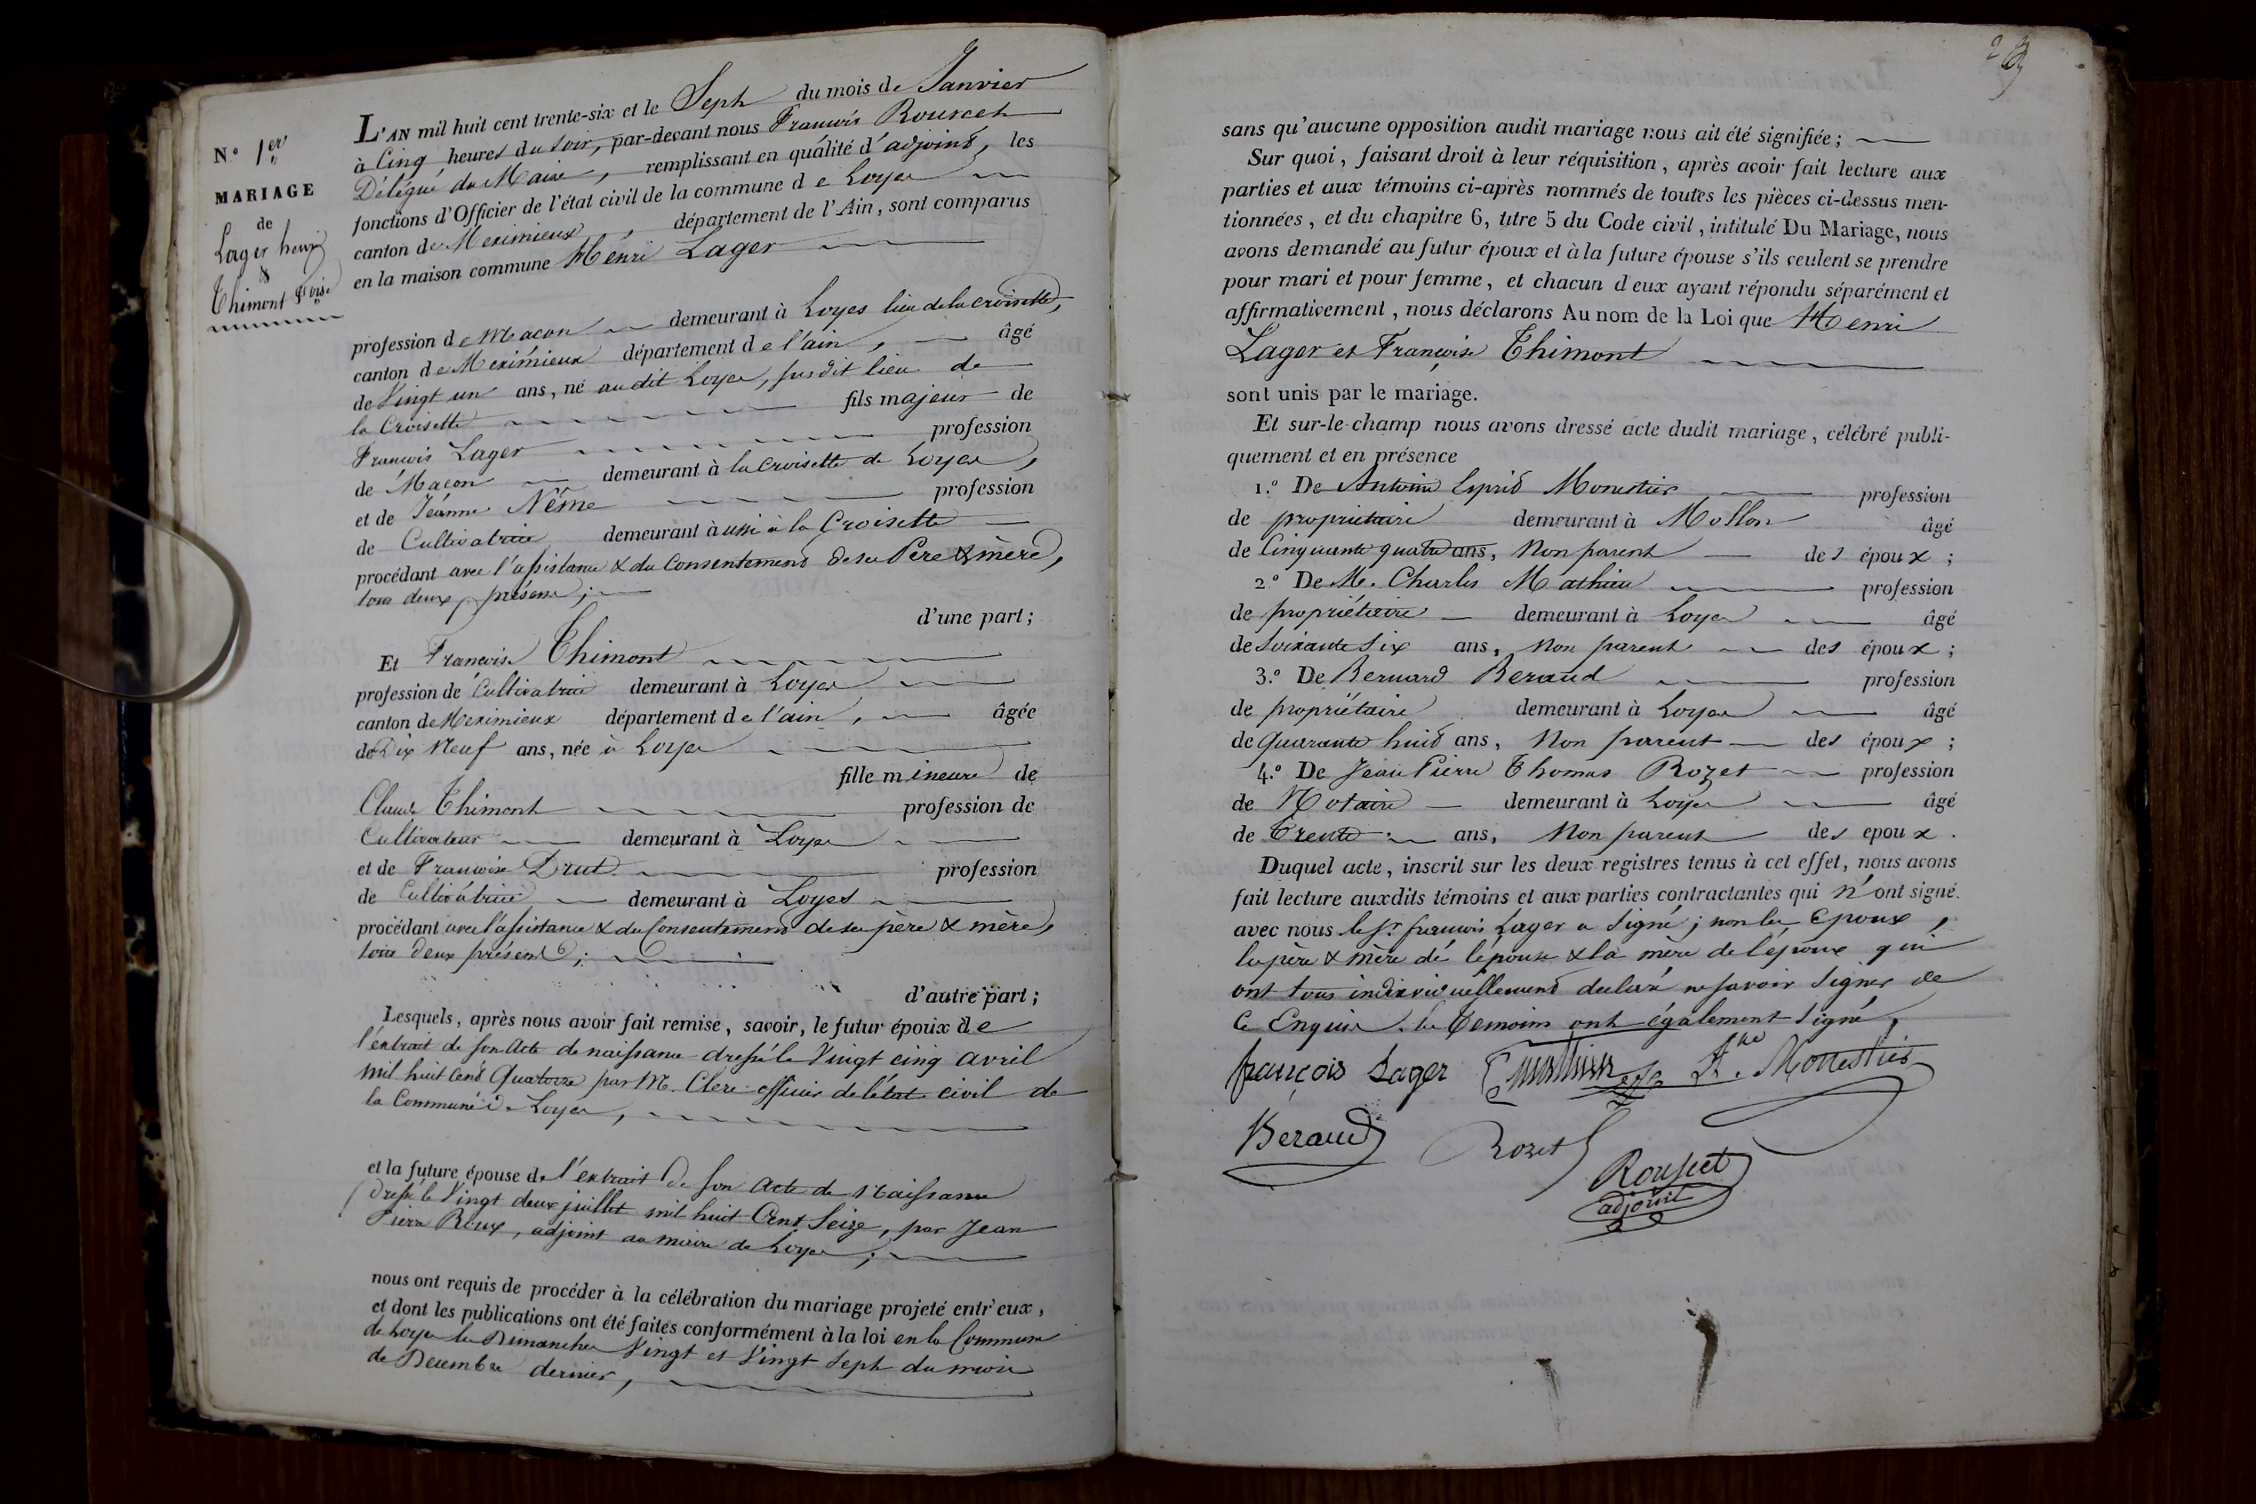 N.º 1er
MARIAGE
de
Lager henri
&
Thimont Foise
L'AN mil huit cent trente-six et le Sept du mois de Janvier
à Cinq heures du Soir, par-devant nous François Rousset
Délégué du Maire, remplissant en qualité d'adjoint, les
fonctions d'Officier de l'état civil de la commune de Loyes
canton de Meximieux, département de l'Ain, sont comparus
en la maison commune Henri Lager
profession de Macon demeurant à Loyes lieu de la croisette,
canton de Meximieux département de l'ain, âgé
de Vingt un ans, né au dit Loyes, susdit lieu de
la Croisette fils majeur de
François Lager profession
de Macon demeurant à la Croisette de Loyes,
et de Jéanne Nême profession
de Cultivatrice demeurant à ussi à la Croisette
procédant avec l'assistance & du Consentement de ses Père & mère,
tous deux présens;
d'une part;
Et Françoise Thimont
profession de Cultivatrice demeurant à Loyes
canton de Meximieux département de l'ain, âgée
de Dix Neuf ans, née à Loyes
fille mineure de
Claude Thimont profession de
Cultivateur demeurant à Loyes
et de Françoise Drut profession
de Cultivatrice demeurant à Loyes
procédant avec l'assistance & du Consentement de ses père & mère,
tous deux présent;
d'autre part;
Lesquels, après nous avoir fait remise, savoir, le futur époux de
l'extrait de son Acte de naissance dressé le Vingt cinq avril
mil huit Cent Quatorze par M. Clerc officier de l'état civil de
la Commune de Loyes,
et la future épouse de l'extrait de son Acte de Naissance
dressé le Vingt deux juillet mil huit Cent Seize, par Jean
Pierre Roux, adjoint au maire de Loyes;
nous ont requis de procéder à la célébration du mariage projeté entr'eux,
et dont les publications ont été faites conformément à la loi en la Commune
de Loyes les Dimanches Vingt et Vingt Sept du mois
de Decembre dernier,
sans qu'aucune opposition audit mariage nous ait été signifiée;
Sur quoi, faisant droit à leur réquisition, après avoir fait lecture aux
parties et aux témoins ci-après nommés de toutes les pièces ci-dessus men-
tionnées, et du chapitre 6, titre 5 du Code civil, intitulé Du Mariage, nous
avons demandé au futur époux et à la future épouse s'ils veulent se prendre
pour mari et pour femme, et chacun d'eux ayant répondu séparément et
affirmativement, nous déclarons Au nom de la Loi que Henri
Lager et Françoise Thimont
sont unis par le mariage.
Et sur-le-champ nous avons dressé acte dudit mariage, célébré publi-
quement et en présence
1.º De Antoine Esprit Monestier profession
de propriétaire demeurant à Mollon âgé
de Cinquante quatre ans, Non parent des époux;
2.º De M. Charles Mathieu profession
de propriétaire demeurant à Loyes âgé
de Soixante Six ans, Non parent des époux;
3.º De Bernard Beraud profession
de propriétaire demeurant à Loyes âgé
de quarante huit ans, Non parent des époux;
4.º De Jean Pierre Thomas Rozet profession
de Notaire demeurant à Loyes âgé
de Trente ans, Non parent des epoux.
Duquel acte, inscrit sur les deux registres tenus à cet effet, nous avons
fait lecture auxdits témoins et aux parties contractantes qui n'ont signé.
avec nous le sr. françois Lager a signé; non les Epoux,
les père & mère de l'épouse & la mère de l'époux qui
ont tous individuellement déclaré ne savoir signer de
ce Enquis. les temoins ont également signé,
françois Lager Ane. Monestier
Beraud Rozet
Rousset
adjoint